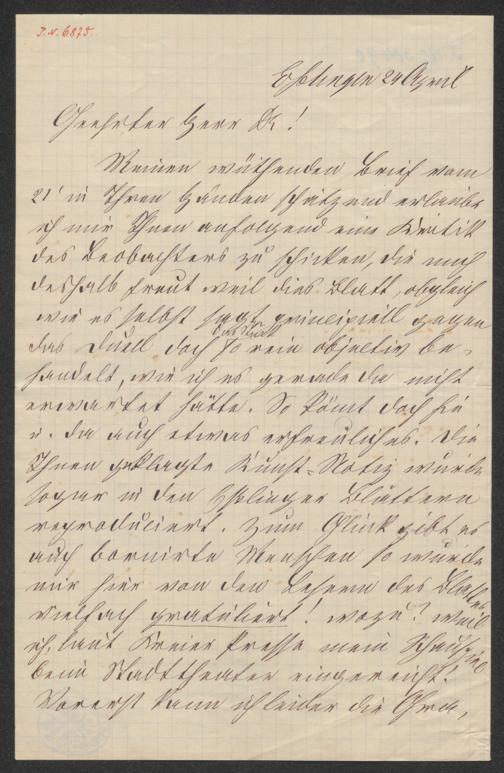 J. N. 6875.
Eßlingen 24 April
Geehrter Herr Dr!
Meinen wüthenden Brief vom
21' in Ihren Händen schätzend erlaube
ich mir Ihnen anfolgend eine Kritik
des Beobachters zu schicken, die mich
deshalb freut weil dies Blatt, obgleich
wie es selbst sagt principiell gegen
das Duell doch das Stück so rein objectiv be-
handelt, wie ich es gerade da nicht
erwartet hätte. So kömt doch hie
u. da auch etwas erfreuliches. Die
Ihnen geklagte Kunst-Notiz wurde
sogar in den Eßlinger Blättern
reproduciert. Zum Glück gibt es
auch bornirte Menschen so wurde
mir hier von den Lesern des Blattes
vielfach gratuliert! wozu? weil
ich, laut Freier Presse mein Schauspiel
beim Stadttheater eingereicht!
Vorerst kann ich leider die Gra-